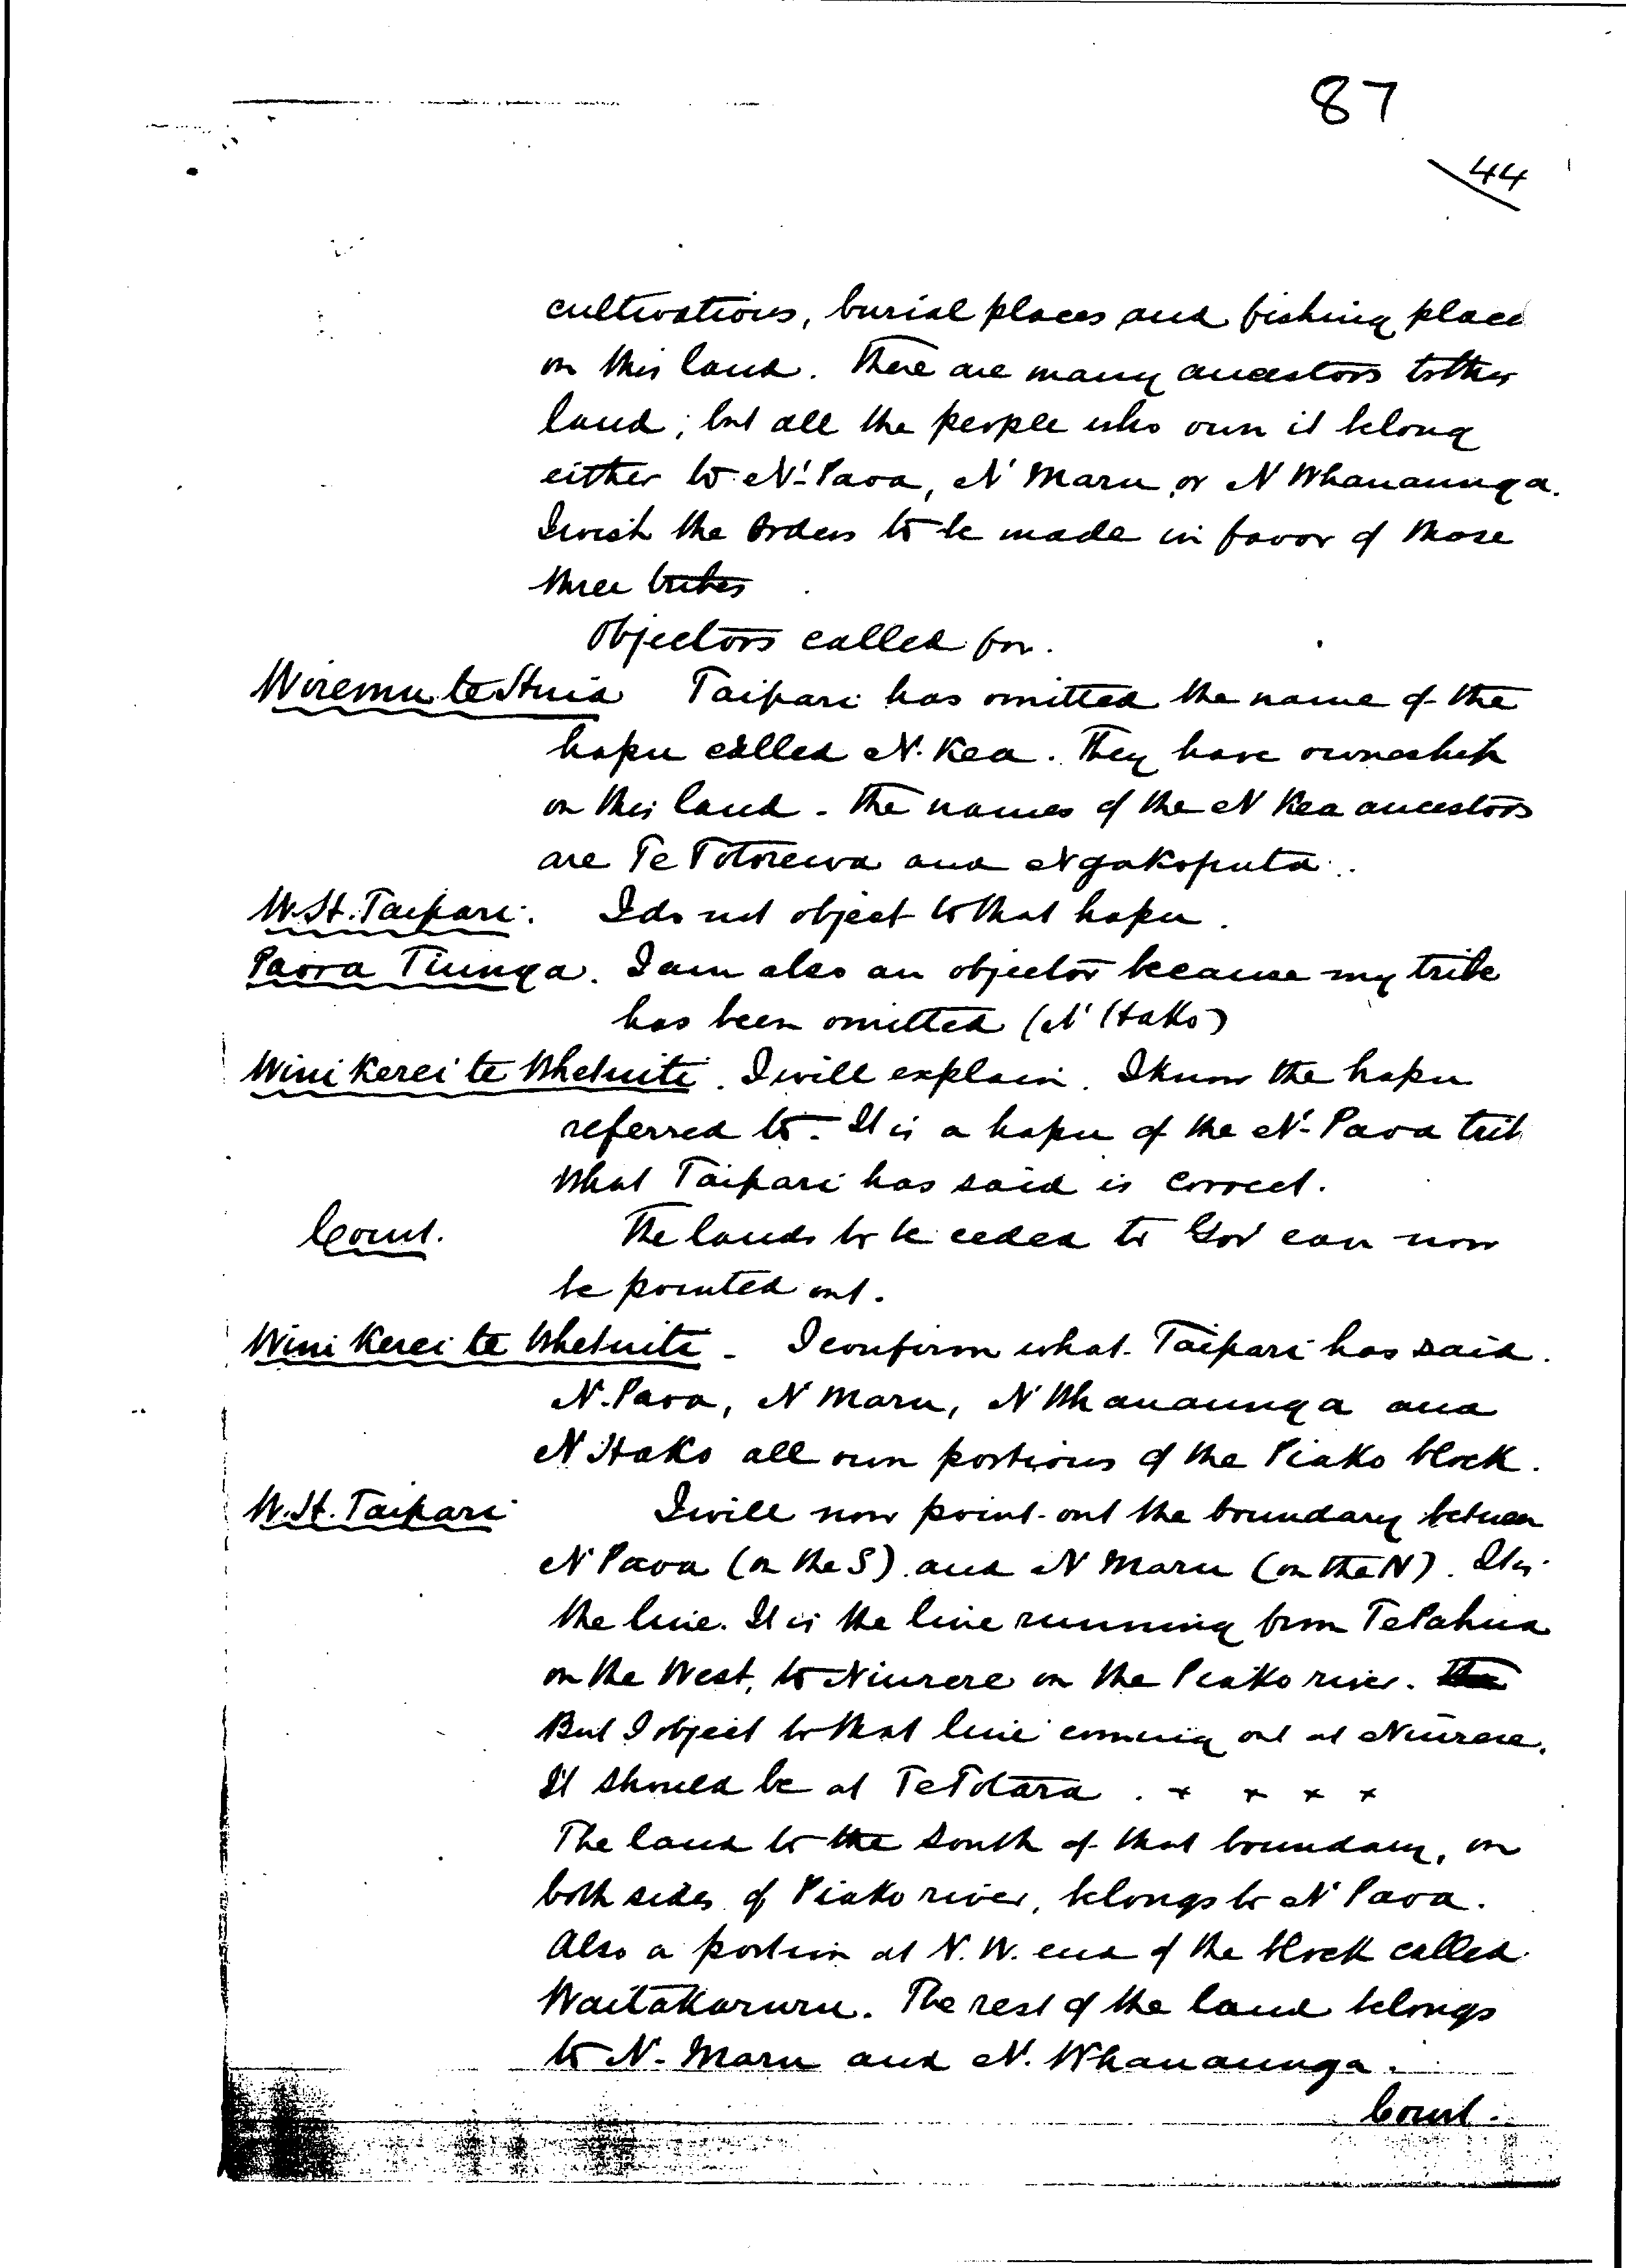 87
44
cultivations, burial places and fishing place
on this land. There are many ancestors to this
land; but all the people who own it belong
either to N' Paoa, N' Maru, or N Whanaunga.
I wish the Orders to be made in favor of those
three tribes
Objectors called for.
Wiremu te Huia Taipari has omitted the name of the
hapu called N. Kea. They have ownership
on this land - The names of the N Kea ancestors
are Te Totorewa and Ngakoputa.
W.H. Taipari. I do not object to that hapu.
Paora Tiunga. I am also an objector because my tribe
has been omitted (N' Hako)
Wini Kerei te Whetuiti. I will explain. I know the hapu
referred to. It is a hapu of the N' Paoa trib
What Taipari has said is correct.
Court. The lands to be ceded to Gov' can now
be pointed out.
Wini Kerei te Whetuiti - I confirm what Taipari has said.
N. Paoa, N Maru, N Whanaunga and
N Hako all own portions of the Piako block.
W.H. Taipari I will now point out the boundary between
N Paoa (on the S) and N Maru (on the N). It is
the line. It is the line running from Te Pahua
on the West, to Niurere on the Piako river. The
But I object to that line coming out at Niurere.
It should be at Te Totara . x x x x
The land to the South of that boundary, on
both sides of Piako river, belongs to N' Paoa.
Also a portion at N.W. end of the block called
Waitakaruru. The rest of the land belongs
to N. Maru and N. Whanaunga.
Court.